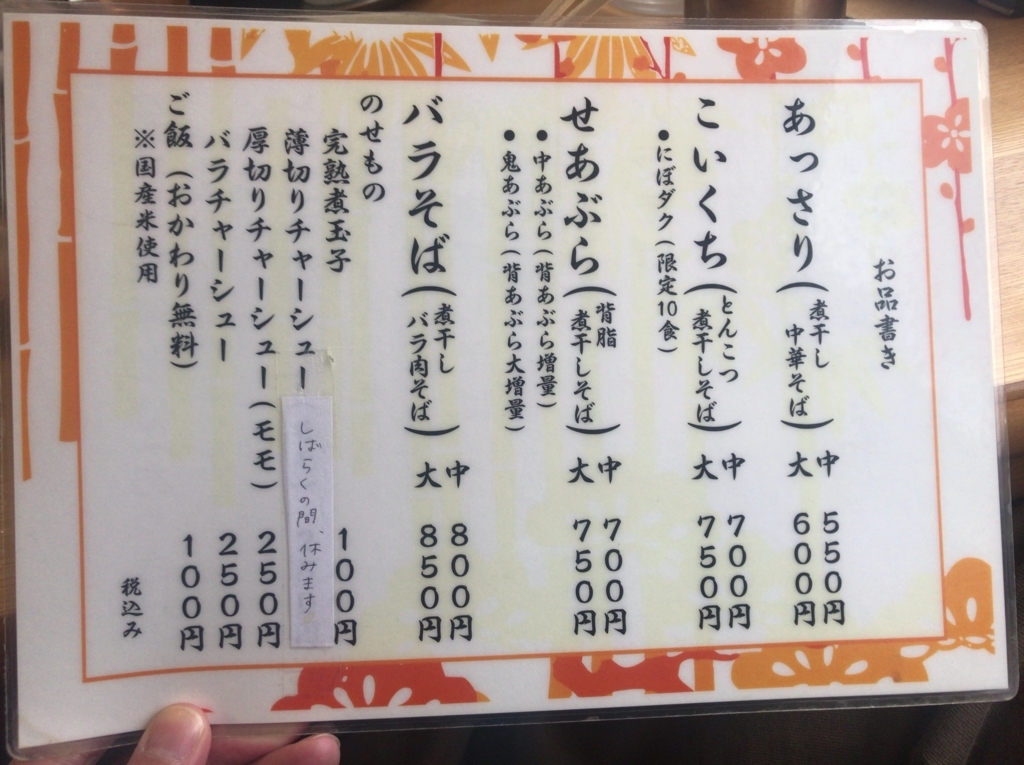 お品書き
あっさり（煮干し中華そば）中 550円
大 600円
こいくち（とんこつ煮干しそば）中 700円
大 750円
●にぼダク（限定10食）
せあぶら（背脂煮干しそば）中 700円
大 750円
●中あぶら（背あぶら増量）
●鬼あぶら（背あぶら大増量）
バラそば（煮干しバラ肉そば）中 800円
大 850円
のせもの
完熟煮玉子 100円
薄切りチャーシュー しばらくの間、休みます
厚切りチャーシュー（モモ） 250円
バラチャーシュー 250円
ご飯（おかわり無料） 100円
※国産米使用
税込み